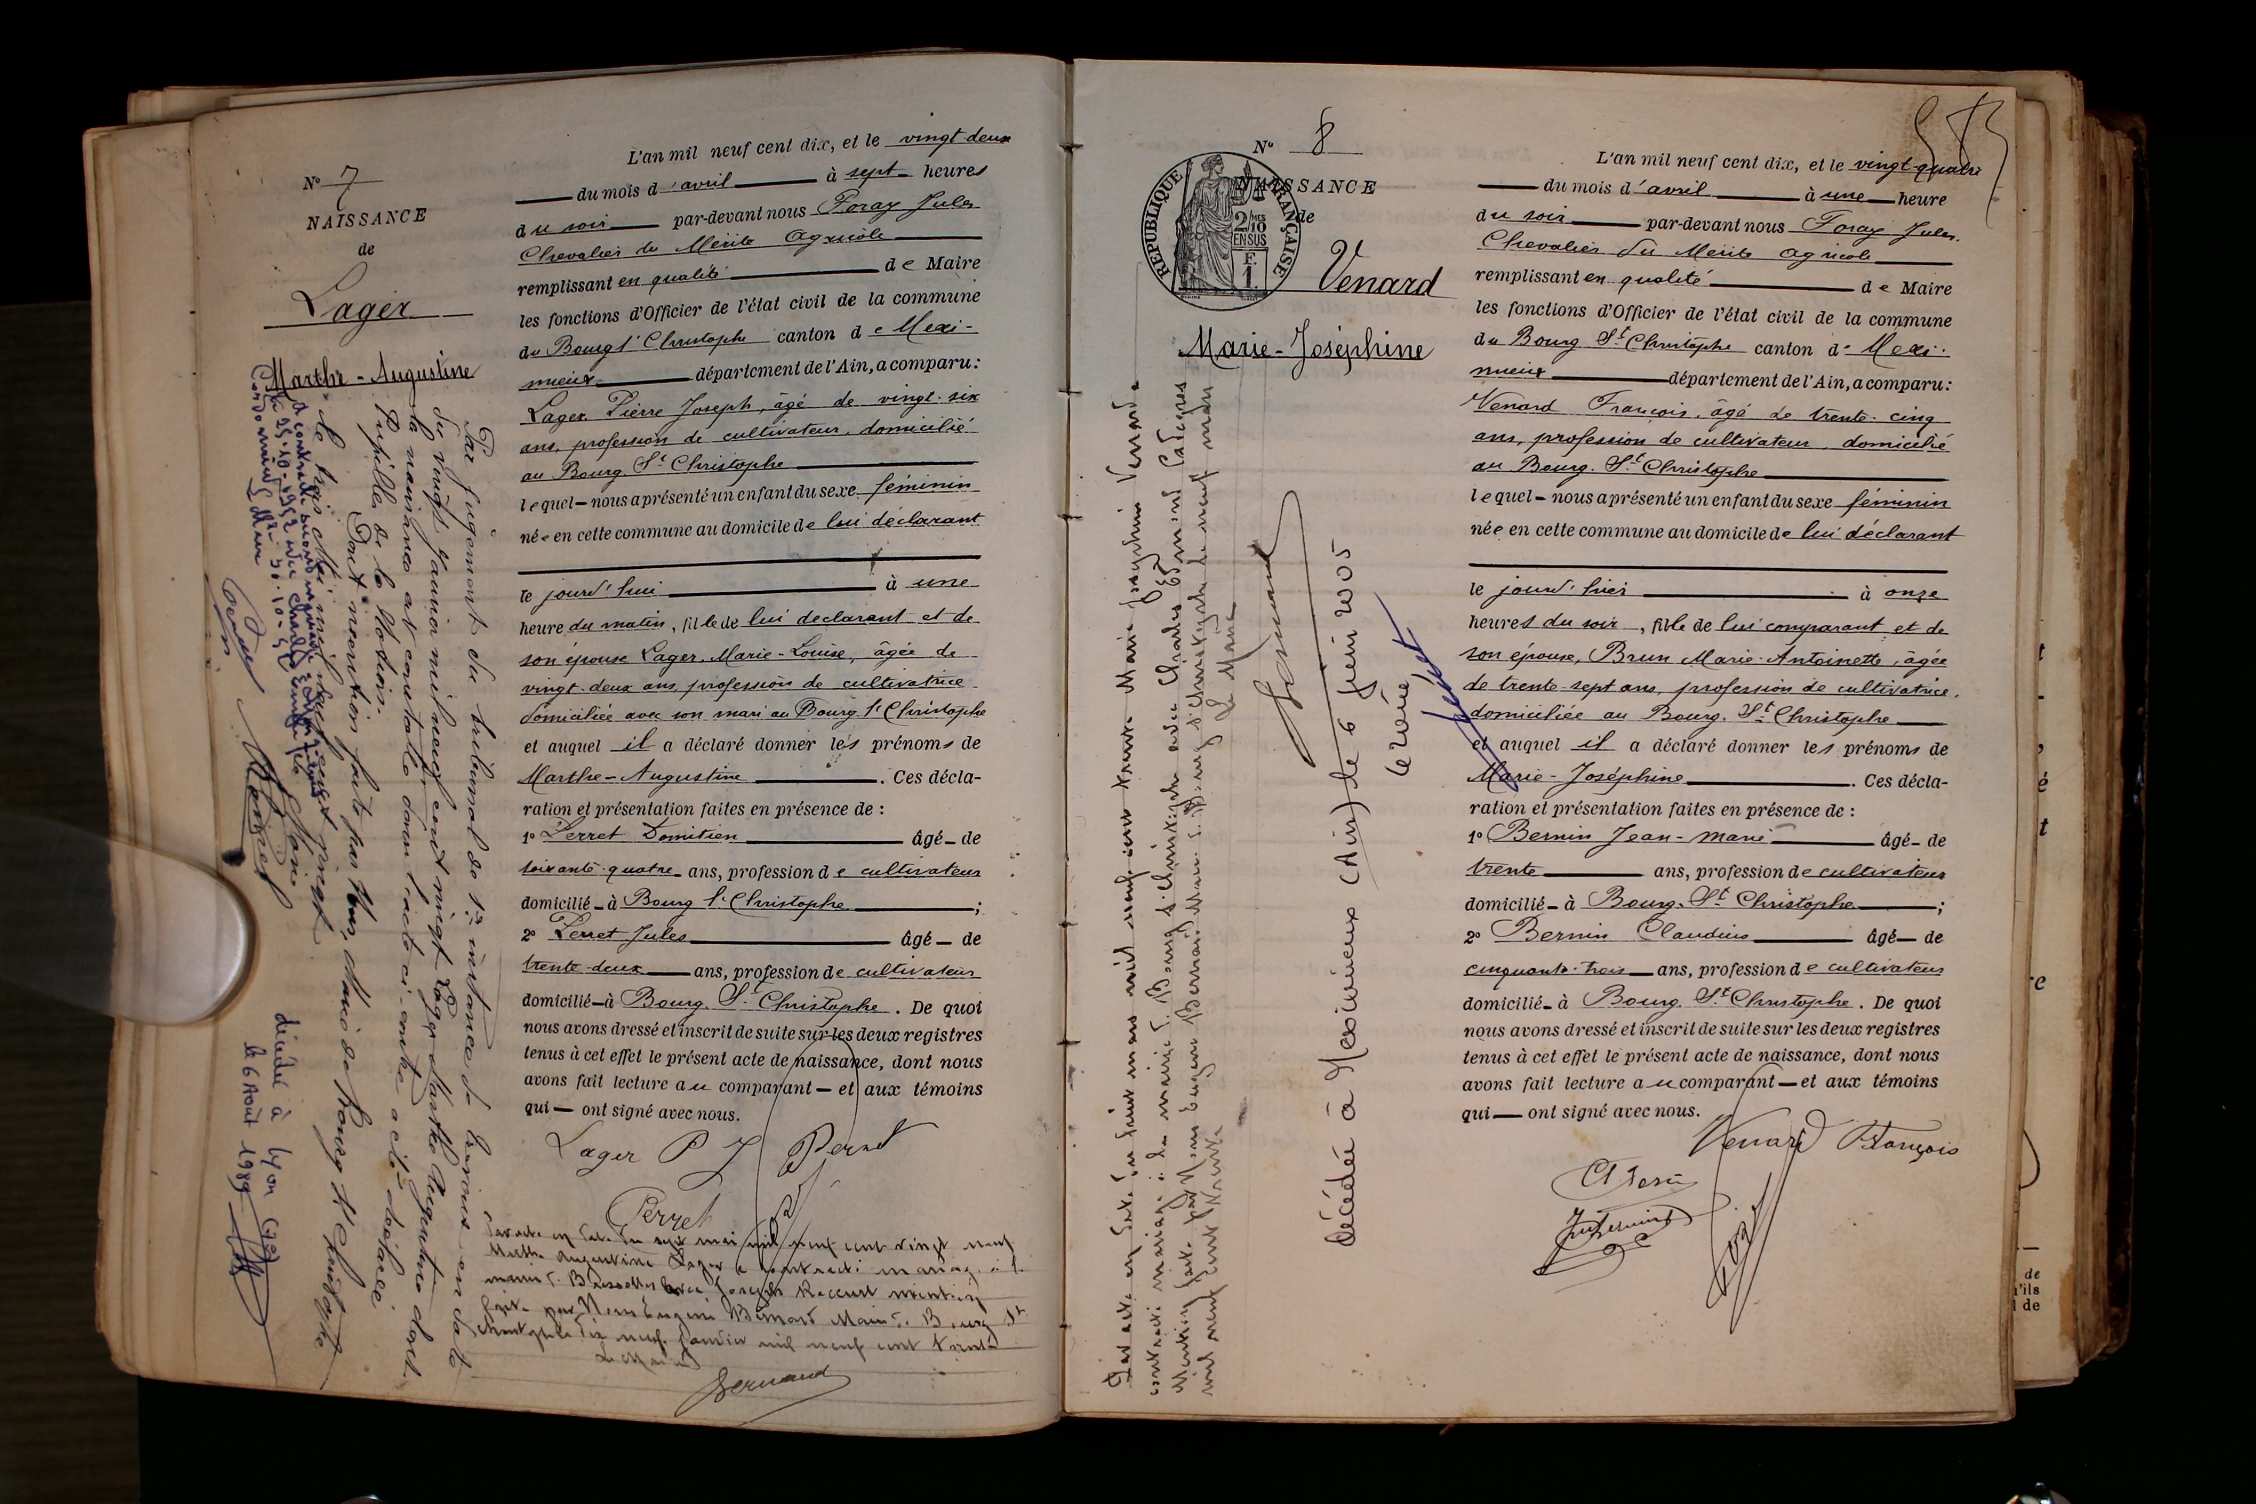 N° 7
NAISSANCE
de
Lager
Marthe - Augustine
L'an mil neuf cent dix, et le vingt-deux
du mois d'avril à sept heures
du soir par-devant nous Foray Jules
Chevalier du Mérite Agricole
remplissant en qualité de Maire
les fonctions d'Officier de l'état civil de la commune
du Bourg St Christophe canton de Mexi-
mieux département de l'Ain, a comparu:
Lager Pierre Joseph, âgé de vingt-six
ans, profession de cultivateur, domicilié
au Bourg St Christophe
lequel nous a présenté un enfant du sexe féminin
née en cette commune au domicile de lui déclarant
le jourd'hui à une
heure du matin, fille de lui déclarant et de
son épouse Lager, Marie-Louise, âgée de
vingt-deux ans, profession de cultivatrice
domiciliée avec son mari au Bourg St Christophe
et auquel il a déclaré donner les prénoms de
Marthe-Augustine. Ces décla-
ration et présentation faites en présence de :
1° Perret Domitien âgé de
soixante-quatre ans, profession de cultivateur
domicilié à Bourg St Christophe ;
2° Perret Jules âgé de
trente-deux ans, profession de cultivateur
domicilié à Bourg St Christophe. De quoi
nous avons dressé et inscrit de suite sur les deux registres
tenus à cet effet le présent acte de naissance, dont nous
avons fait lecture au comparant et aux témoins
qui ont signé avec nous.
Lager P J Perret
Perret
Par acte en date du sept mai mil neuf cent vingt neuf
Marthe Augustine Lager a contracté mariage à la
mairie de avec Joseph mention
faite par Nous Eugène Bernard Maire de Bourg St
Christophe le dix neuf janvier mil neuf cent trente
Le Maire
Bernard
Par jugement du tribunal de 1re instance de en date
du vingt janvier mil neuf cent vingt Lager Marthe Augustine dont
la naissance est constatée dans l'acte ci-contre a été déclarée
Pupille de la Nation.
Dont mention faite par Nous, Maire de Bourg St Christophe
le trois Mai mil neuf cent vingt
a contracté second mariage
le 25-10-1952 avec Charles
décédée à Lyon
le 6 Août 1989
N° 8
NAISSANCE
de
RÉPUBLIQUE FRANÇAISE
2/10 EN SUS
F. 1
Venard
Marie-Joséphine
L'an mil neuf cent dix, et le vingt-quatre
du mois d'avril à une heure
du soir par-devant nous Foray Jules
Chevalier du Mérite agricole
remplissant en qualité de Maire
les fonctions d'Officier de l'état civil de la commune
du Bourg St Christophe canton de Mexi-
mieux département de l'Ain, a comparu:
Venard François, âgé de trente-cinq
ans, profession de cultivateur, domicilié
au Bourg St Christophe
lequel nous a présenté un enfant du sexe féminin
née en cette commune au domicile de lui déclarant
le jourd'hier à onze
heures du soir, fille de lui comparant et de
son épouse, Brun Marie-Antoinette, âgée
de trente-sept ans, profession de cultivatrice,
domiciliée au Bourg St Christophe
et auquel il a déclaré donner les prénoms de
Marie-Joséphine. Ces décla-
ration et présentation faites en présence de :
1° Bernin Jean-Marie âgé de
trente ans, profession de cultivateur
domicilié à Bourg St Christophe ;
2° Bernin Claudius âgé de
cinquante-trois ans, profession de cultivateur
domicilié à Bourg St Christophe. De quoi
nous avons dressé et inscrit de suite sur les deux registres
tenus à cet effet le présent acte de naissance, dont nous
avons fait lecture au comparant et aux témoins
qui ont signé avec nous.
Venard François
Par acte en date du mil neuf cent trente Marie Joséphine Venard a
contracté mariage à la mairie de Bourg St Christophe avec Charles
Mention faite par Nous Eugène Bernard Maire de Bourg St Christophe le neuf
mil neuf cent trente Le Maire
Bernard
Décédée à Meximieux (Ain) le 6 juin 2005
le 20